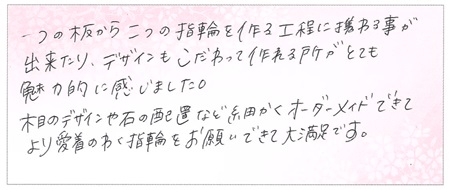 一つの板から二つの指輪を作る工程に携わる事が
出来たり、デザインもこだわって作れる所がとても
魅力的に感じました。
木目のデザインや石の配置など細かくオーダーメイドできて
より愛着のわく指輪をお願いできて大満足です。